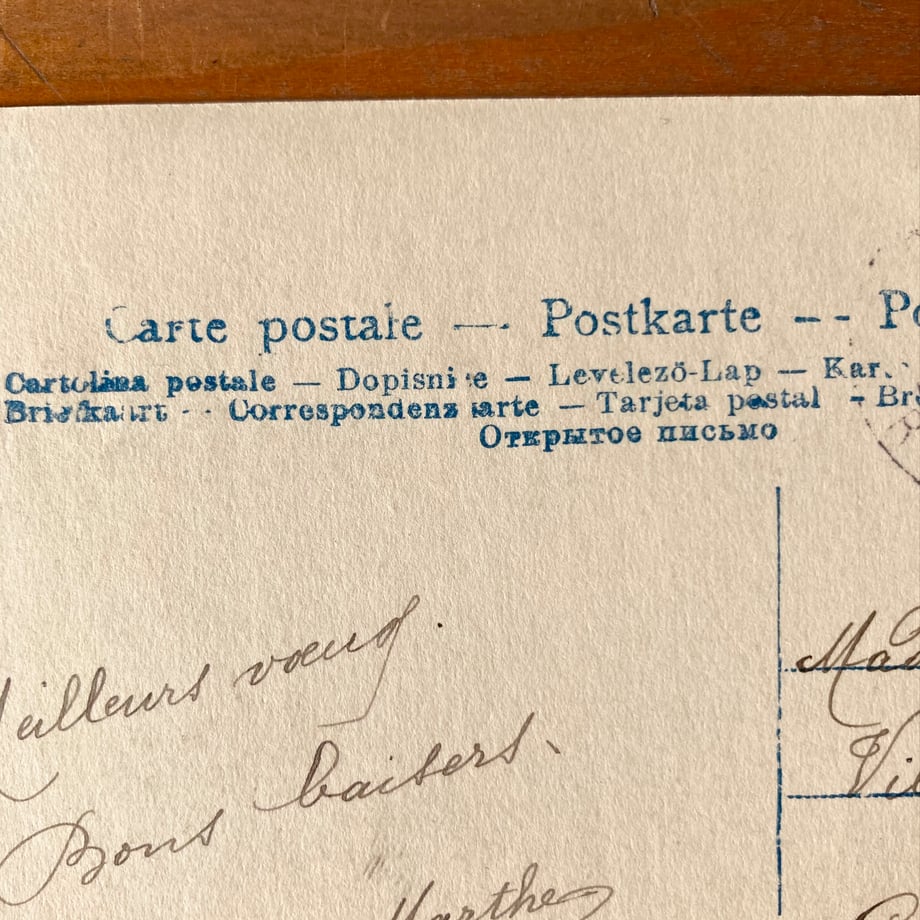 Carte postale — Postkarte --
Cartolina postale — Dopisnice — Levelező-Lap —
Briefkaart - - Correspondenzkarte — Tarjeta postal -
Открытое письмо
Meilleurs vœux.
Bons baisers.
Marthe